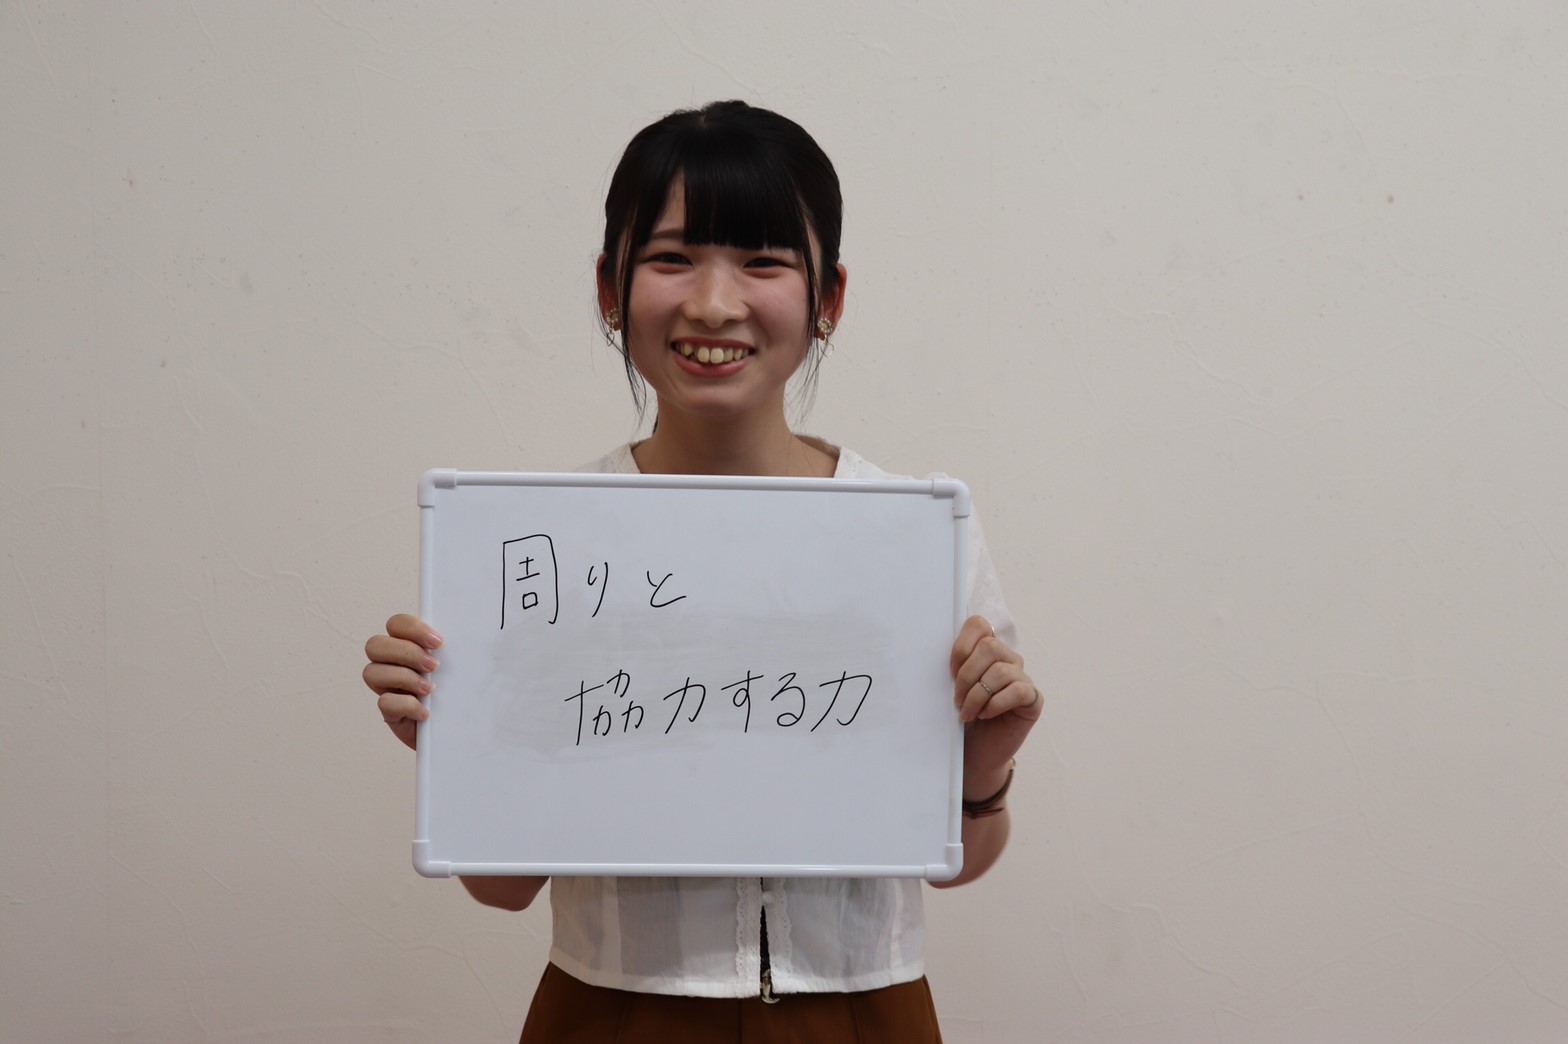 周りと
協力する力